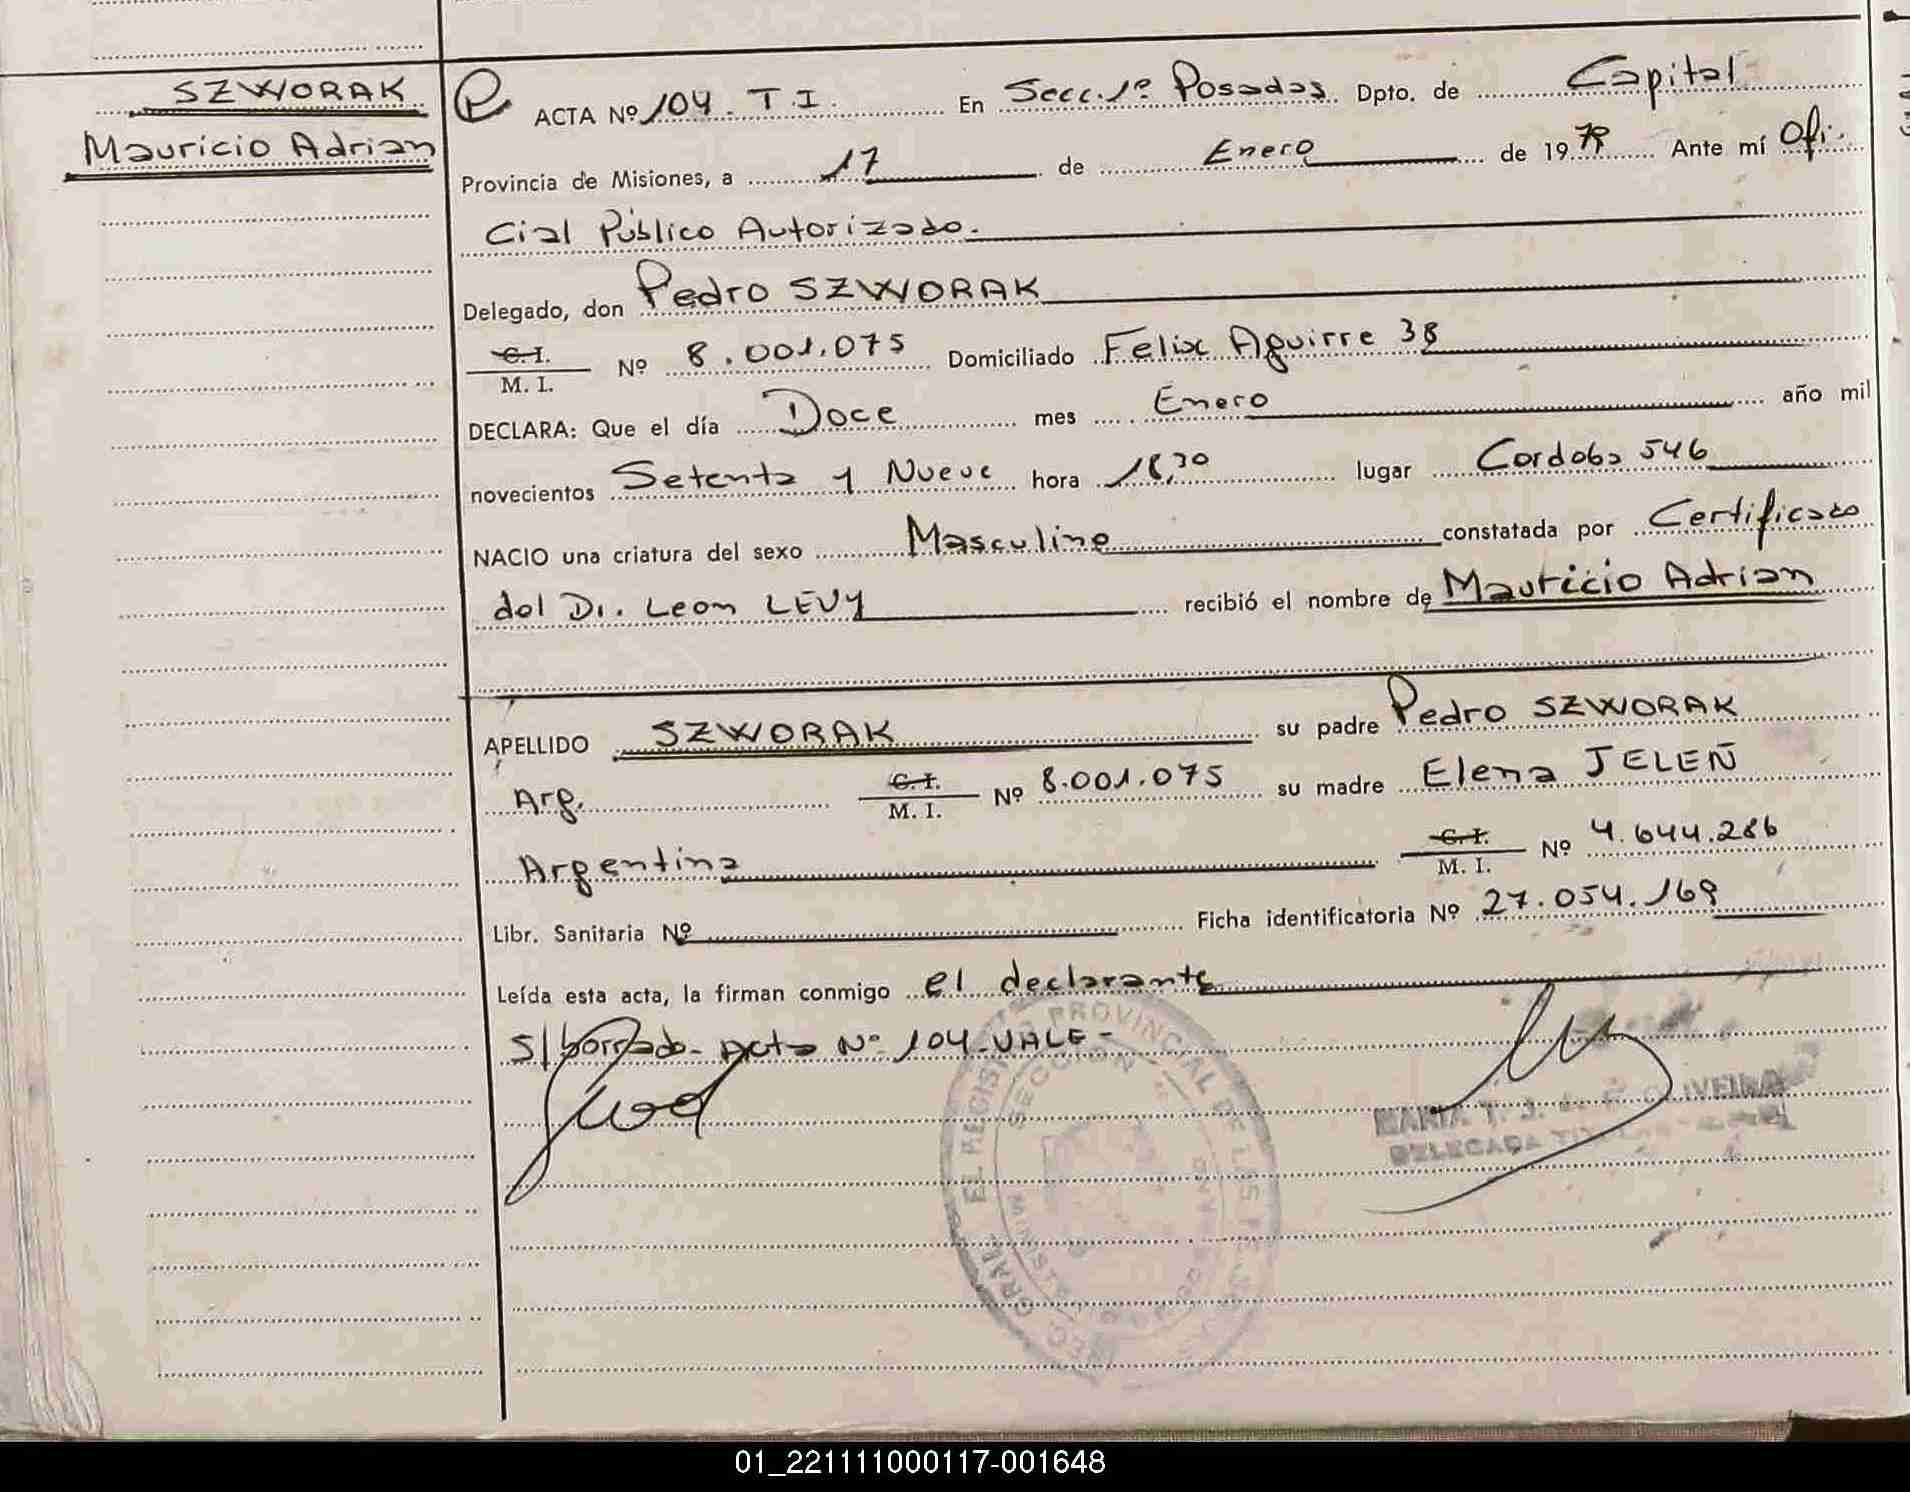 SZWORAK
Mauricio Adrian
ACTA Nº 104. T.I. En Secc. 1º Posadas Dpto. de Capital
Provincia de Misiones, a 17 de Enero de 1979 Ante mí Ofi-
cial Público Autorizado.
Delegado, don Pedro SZWORAK
C.I.
M. I. Nº 8.001.075 Domiciliado Felix Aguirre 38
DECLARA: Que el día Doce mes Enero año mil
novecientos Setenta y Nueve hora 18,30 lugar Cordoba 546
NACIO una criatura del sexo Masculino constatada por Certificado
del Dr. Leon LEVY recibió el nombre de Mauricio Adrian
APELLIDO SZWORAK su padre Pedro SZWORAK
Arg. C.I.
M. I. Nº 8.001.075 su madre Elena JELEÑ
Argentina C.I.
M. I. Nº 4.644.286
Libr. Sanitaria Nº Ficha identificatoria Nº 27.054.169
Leída esta acta, la firman conmigo el declarante
S/borrado- Acta Nº 104-VALE-
REGISTRO PROVINCIAL DE LAS
SECCION
MARIA T. J. de OLIVEIRA
DELEGADA
01_221111000117-001648